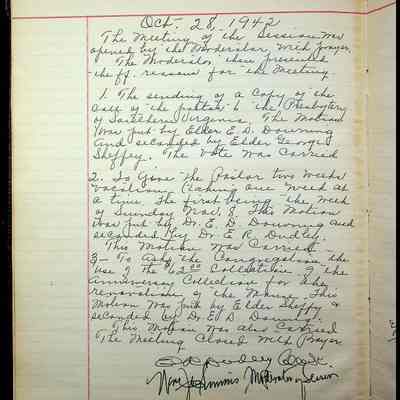 Oct. 28, 1942
The Meeting of the Session was
opened by the Moderator, with prayer.
The Moderator, then presented
the ff. reasons for the Meeting.
1. The sending of a Copy of the
Call of the pastor to the Presbytery
of Southern Virginia. The Motion
was put by Elder E. D. Downing
and seconded by Elder George
Sheffey. The Vote was Carried
2. To Give the Pastor two weeks
vacation, taking one week at
a time. The first being the week
of Sunday Nov. 8. This Motion
was put by Dr. E. D. Downing and
seconded by Dr. E. R. Dudley.
This Motion was Carried
3- To Ask the Congregation the
use of the Collection of the
Anniversary Collection for the
renovation of the Manse. This
Motion was put by Elder Sheffy &
seconded by Dr. E. D. Downing.
This Motion was also Carried
The Meeting Closed with Prayer.
Dudley Clerk.
Moderator of Session